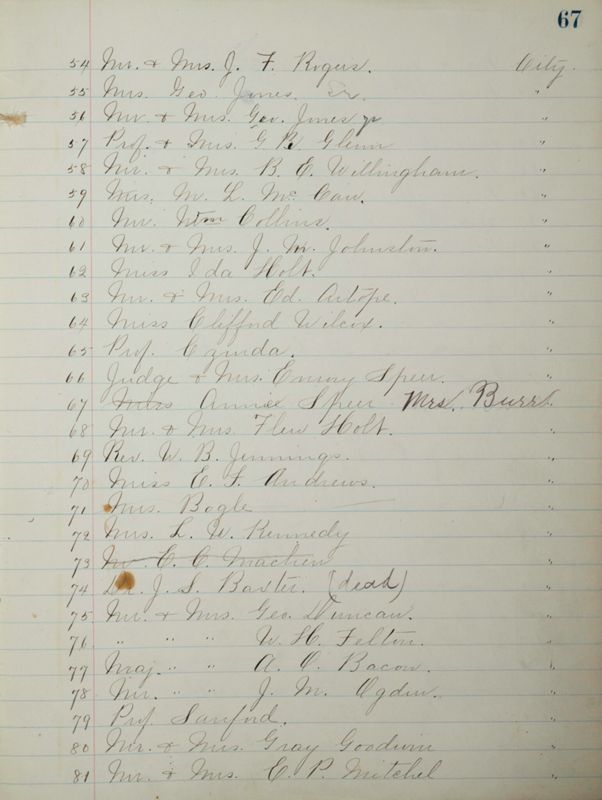 67
54 Mr. & Mrs. J. F. Rogers. City.
55 Mrs. Geo. Jones. Sr. "
56 Mr. & Mrs. Geo. Jones jr "
57 Prof. & Mrs. G. R. Glenn "
58 Mr. & Mrs. B. E. Willingham. "
59 M. L. Mc Caw. "
60 Mr. Collins. "
61 Mr. & Mrs. J. M. Johnston. "
62 Miss Ida Holt. "
63 Mr. & Mrs. Ed. Artope. "
64 Miss Clifford Wilcox. "
65 Prof. "
66 Judge & Mrs. Emory Speer. "
67 Annie Speer Mrs. Burr. "
68 Mr. & Mrs. Flew Holt. "
69 Rev. W. B. Jennings. "
70 Miss E. F. Andrews. "
71 Mrs. Bogle "
72 Mrs. L. W. Kennedy "
73 Mr E. C. "
74 Dr. J. S. Baxter. (dead) "
75 Mr. & Mrs. Geo. Duncan. "
76 " " " W. H. Felton. "
77 Maj. " " A. O. Bacon. "
78 Mr. " " J. M. Ogden. "
79 Prof Sanford. "
80 Mr. & Mrs. Gray Goodwin "
81 Mr. & Mrs. E. P. Mitchel "